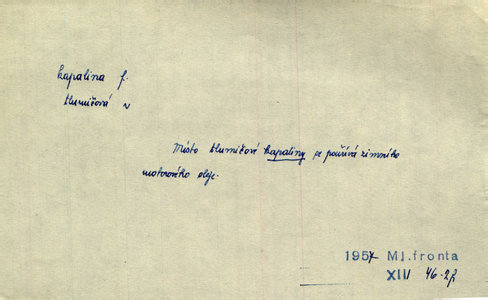 kapalina f.
tlumičová
Místo tlumičové kapaliny se používá zimního
motorového oleje.
1957 Ml.fronta
XII/ 46-2